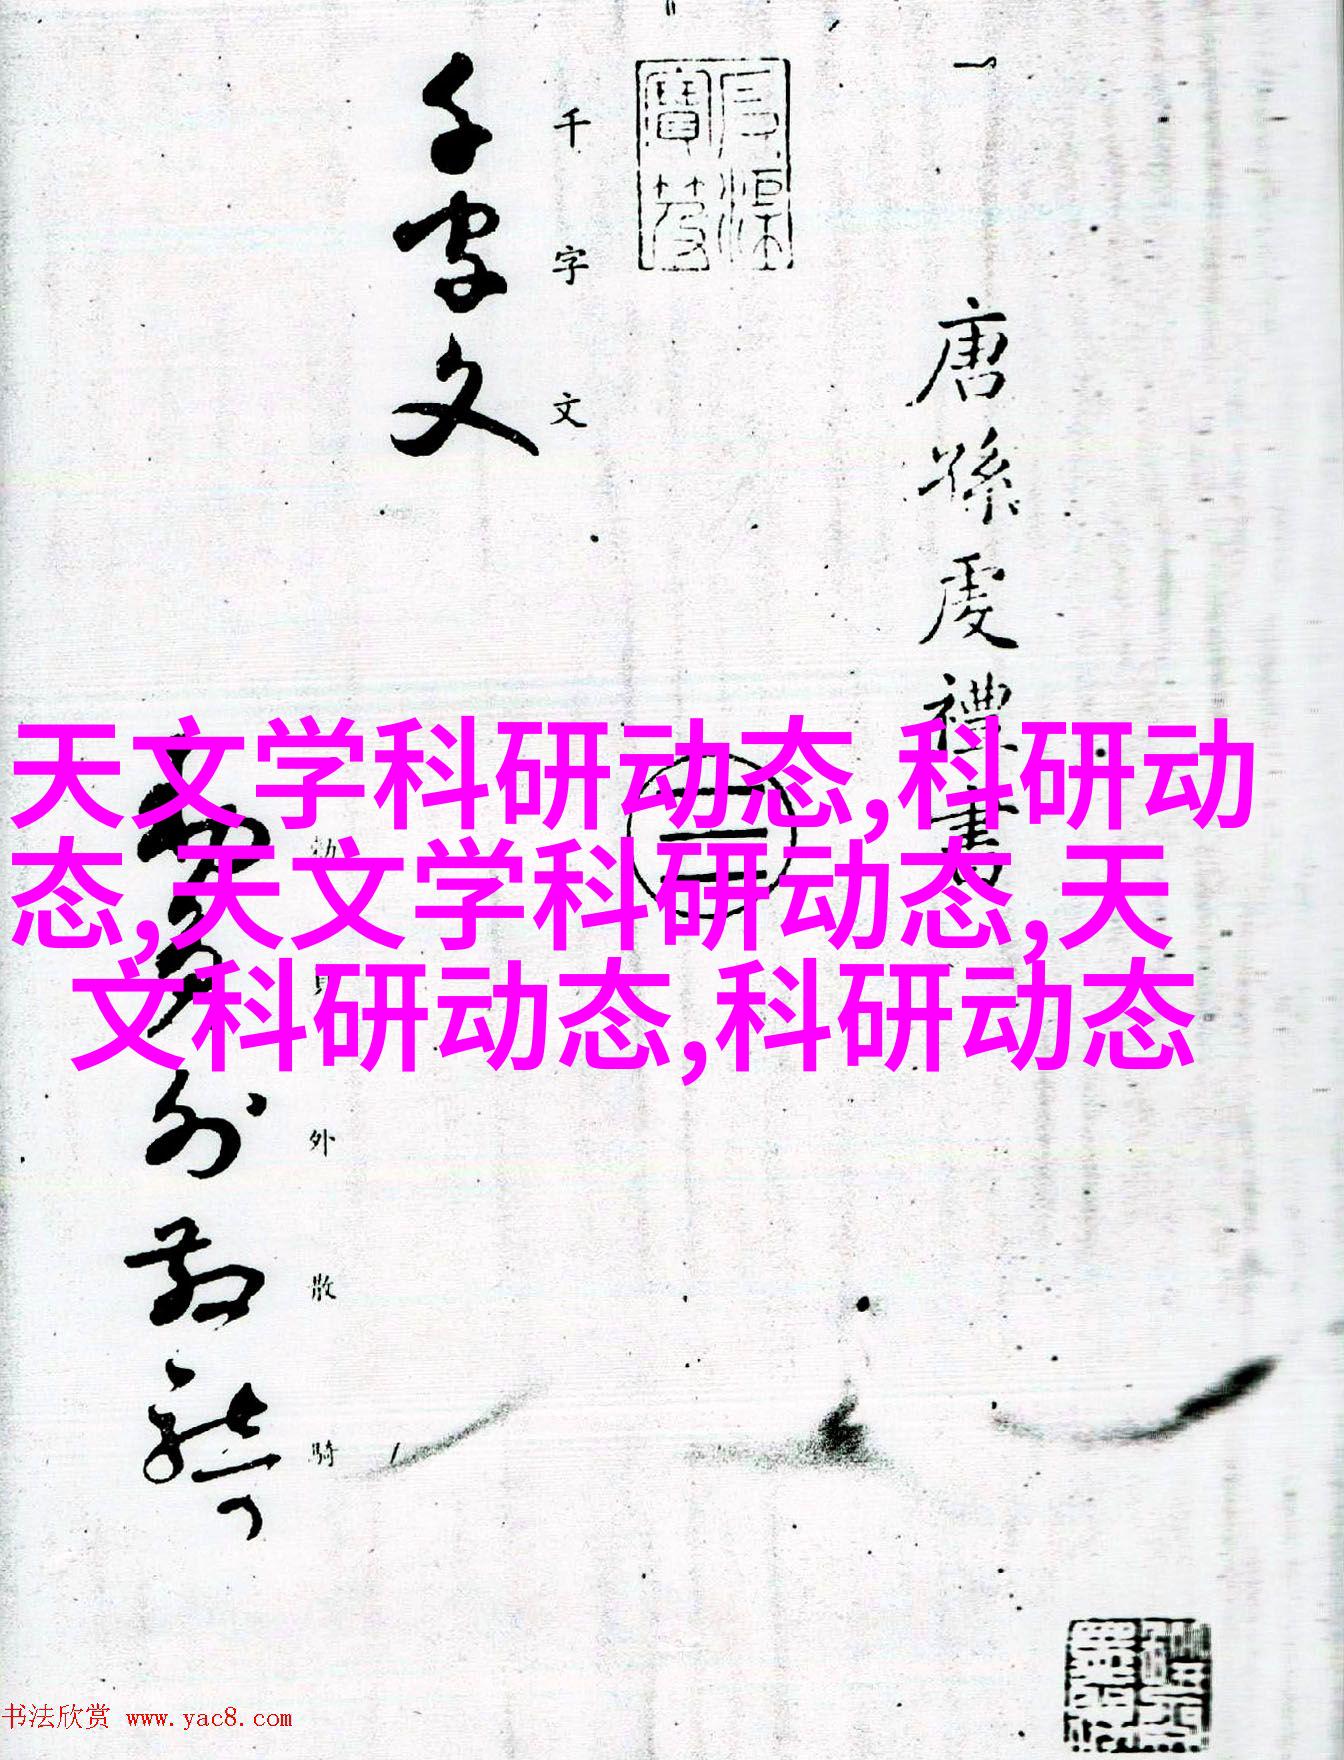 唐孫虔禮書
千字文
千字文
勅
外
散
騎
天文学科研动态,科研动
态,天文学科研动态,天
文科研动态,科研动态
书法欣赏 www.yac8.com